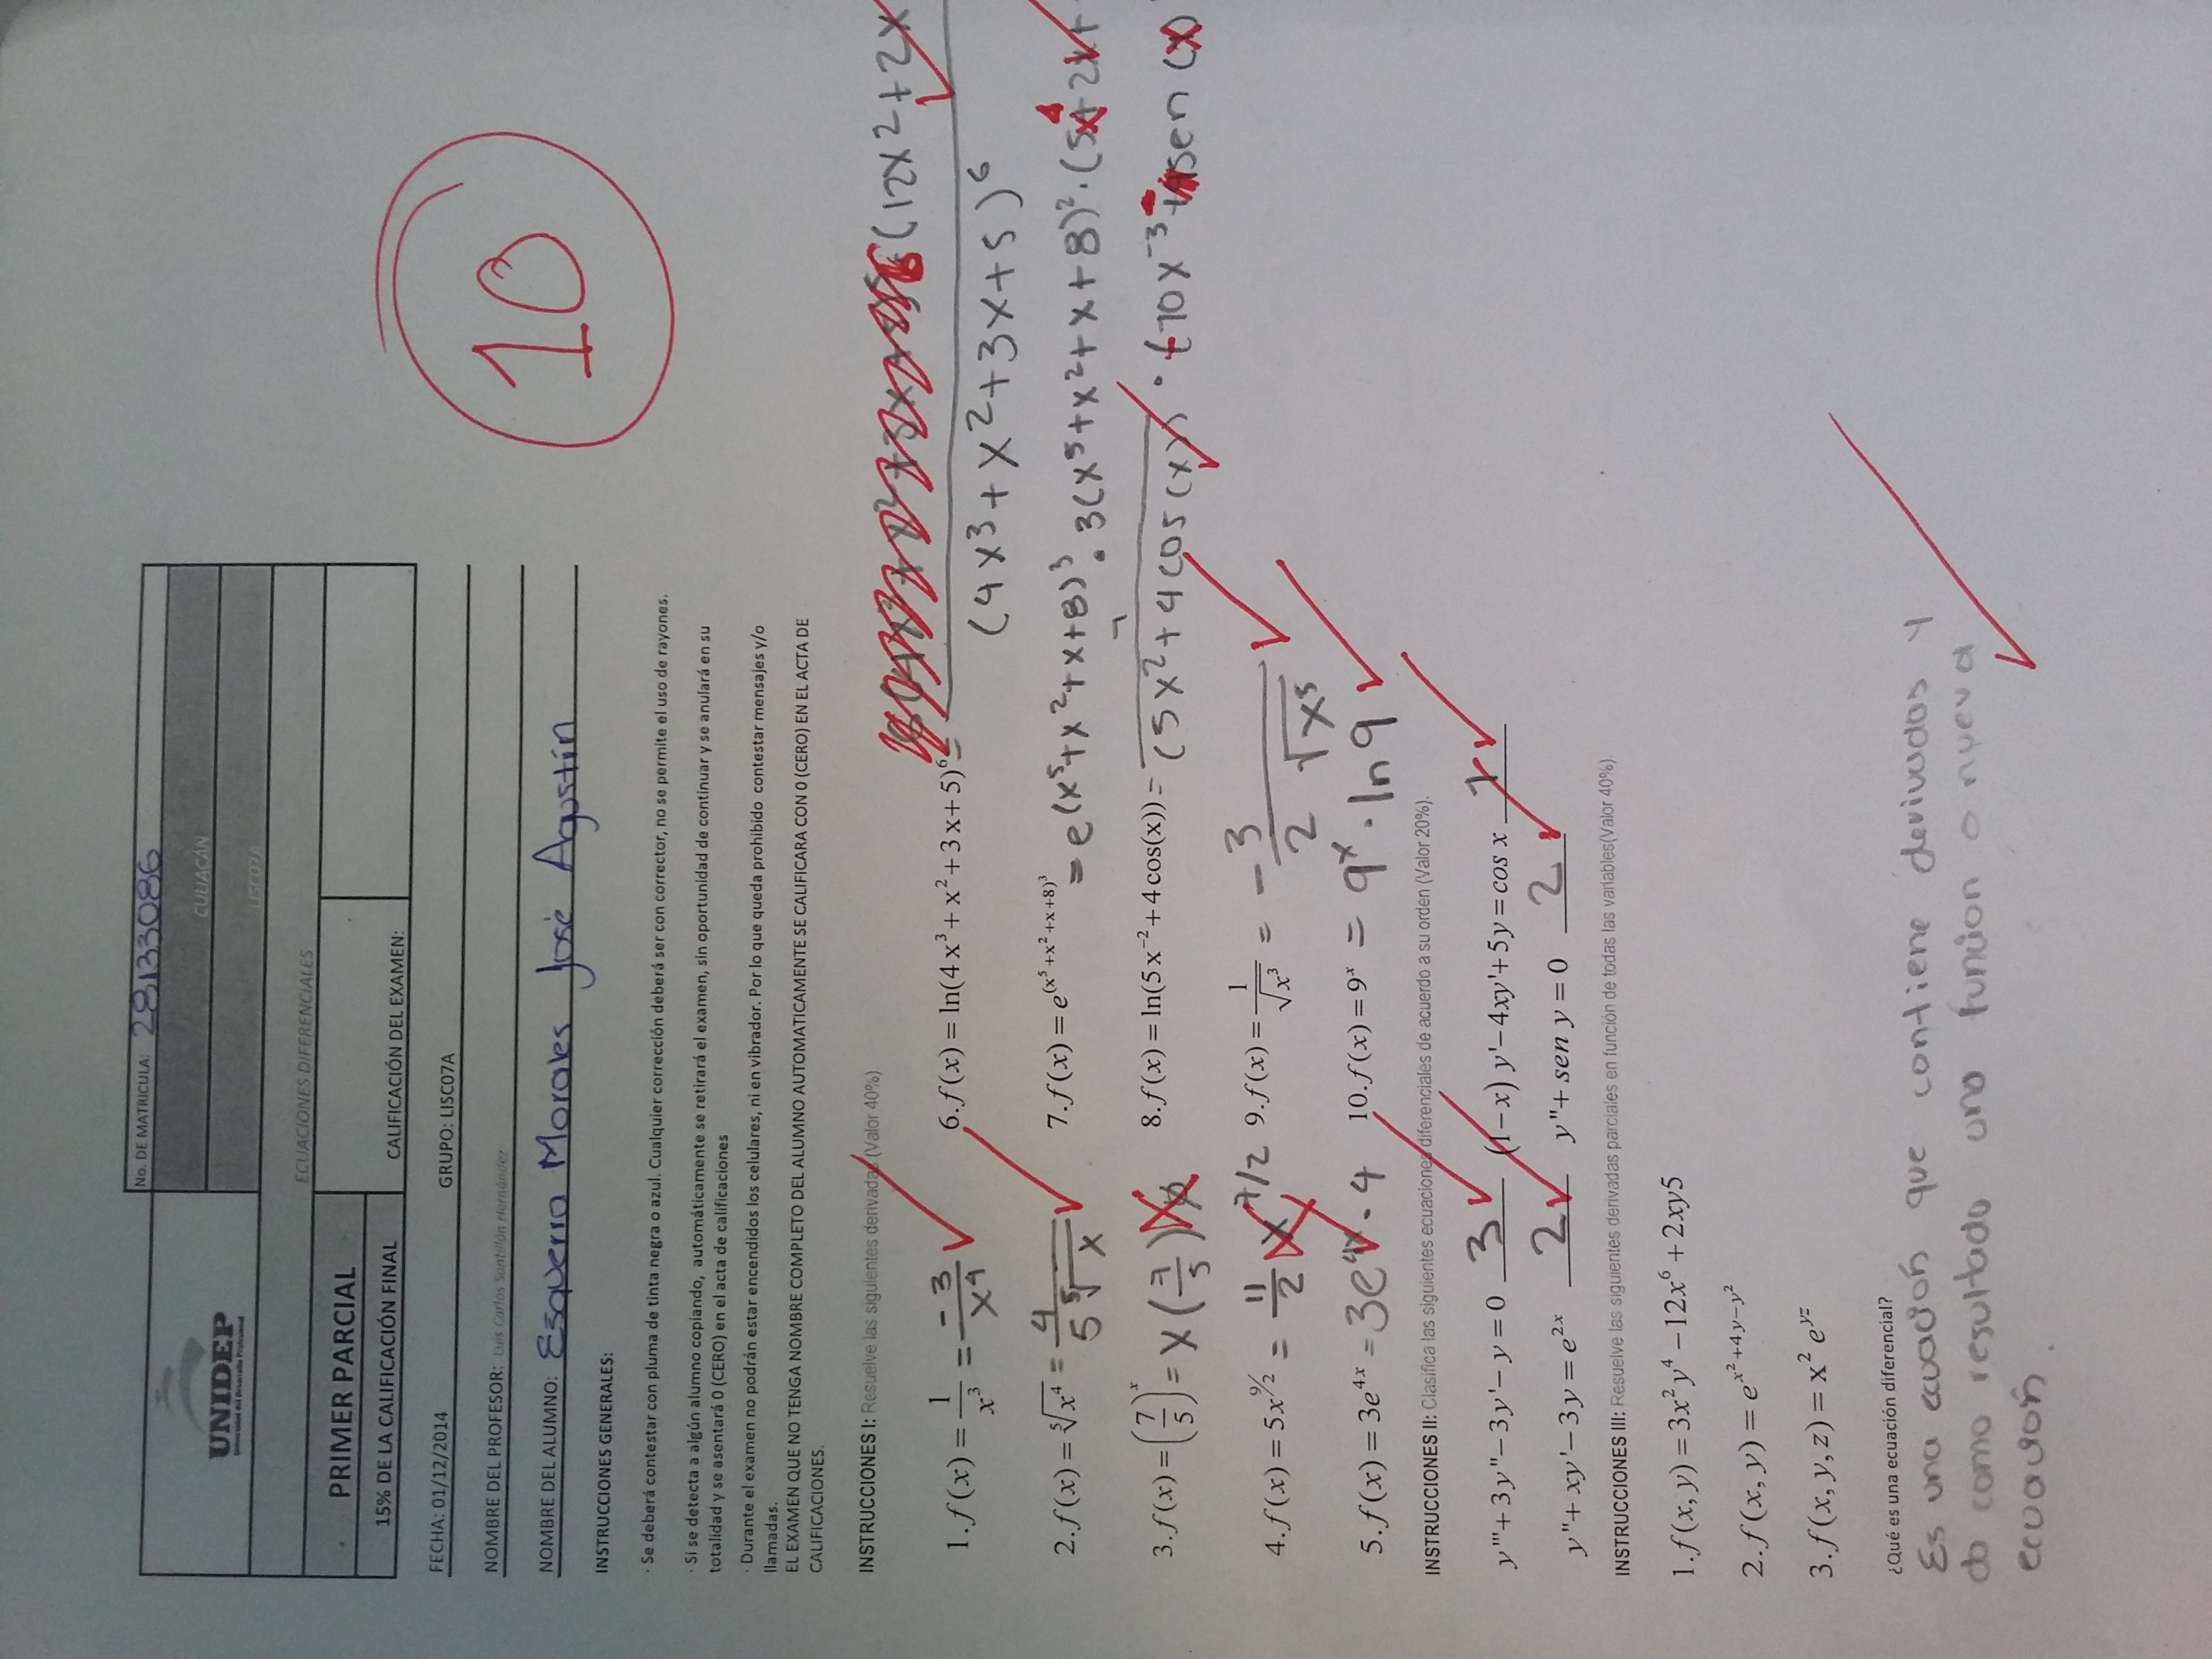 No. DE MATRICULA: 28133086
UNIDEP
Universidad del Desarrollo Profesional
CULIACÁN
LISC07A
ECUACIONES DIFERENCIALES
PRIMER PARCIAL
15% DE LA CALIFICACIÓN FINAL
CALIFICACIÓN DEL EXAMEN:
10
FECHA: 01/12/2014 GRUPO: LISC07A
NOMBRE DEL PROFESOR: Luis Carlos Santillán Hernández
NOMBRE DEL ALUMNO: Esquerra Morales José Agustín
INSTRUCCIONES GENERALES:
· Se deberá contestar con pluma de tinta negra o azul. Cualquier corrección deberá ser con corrector, no se permite el uso de rayones.
· Si se detecta a algún alumno copiando, automáticamente se retirará el examen, sin oportunidad de continuar y se anulará en su
totalidad y se asentará 0 (CERO) en el acta de calificaciones
· Durante el examen no podrán estar encendidos los celulares, ni en vibrador. Por lo que queda prohibido contestar mensajes y/o
llamadas.
EL EXAMEN QUE NO TENGA NOMBRE COMPLETO DEL ALUMNO AUTOMATICAMENTE SE CALIFICARA CON 0 (CERO) EN EL ACTA DE
CALIFICACIONES.
INSTRUCCIONES I: Resuelve las siguientes derivadas (Valor 40%).
1. f(x) = 1/x³ = -3/x⁴
2. f(x) = ⁵√x⁴ = 4/(5 ⁵√x)
3. f(x) = (7/5)^x = x(7/5)
4. f(x) = 5x^(9/2) = 11/2 x^(7/2)
5. f(x) = 3e^(4x) = 3e^(4x) · 4
6. f(x) = ln(4x³ + x² + 3x + 5)⁶ = 6 (12x² + 2x / (4x³ + x² + 3x + 5)⁶
7. f(x) = e^((x⁵+x²+x+8)³) = e^((x⁵+x²+x+8)³) · 3(x⁵+x²+x+8)² · (5x⁴ + 2x +
8. f(x) = ln(5x⁻² + 4cos(x)) = 1/(5x² + 4cos(x)) · (-10x⁻³ - 4sen (x)
9. f(x) = 1/√x³ = -3/(2 √x⁵)
10. f(x) = 9^x = 9^x · ln 9
INSTRUCCIONES II: Clasifica las siguientes ecuaciones diferenciales de acuerdo a su orden (Valor 20%).
y'''+3y''−3y'−y=0 3 (1−x) y'−4xy'+5y=cos x 1
y''+xy'−3y=e^(2x) 2 y''+sen y=0 2
INSTRUCCIONES III: Resuelve las siguientes derivadas parciales en función de todas las variables(Valor 40%).
1. f(x, y) = 3x²y⁴ −12x⁶ + 2xy5
2. f(x, y) = e^(x²+4y−y²)
3. f(x, y, z) = x² e^(yz)
¿Qué es una ecuación diferencial?
Es una ecuación que contiene derivadas y
da como resultado una función o nueva
ecuación.